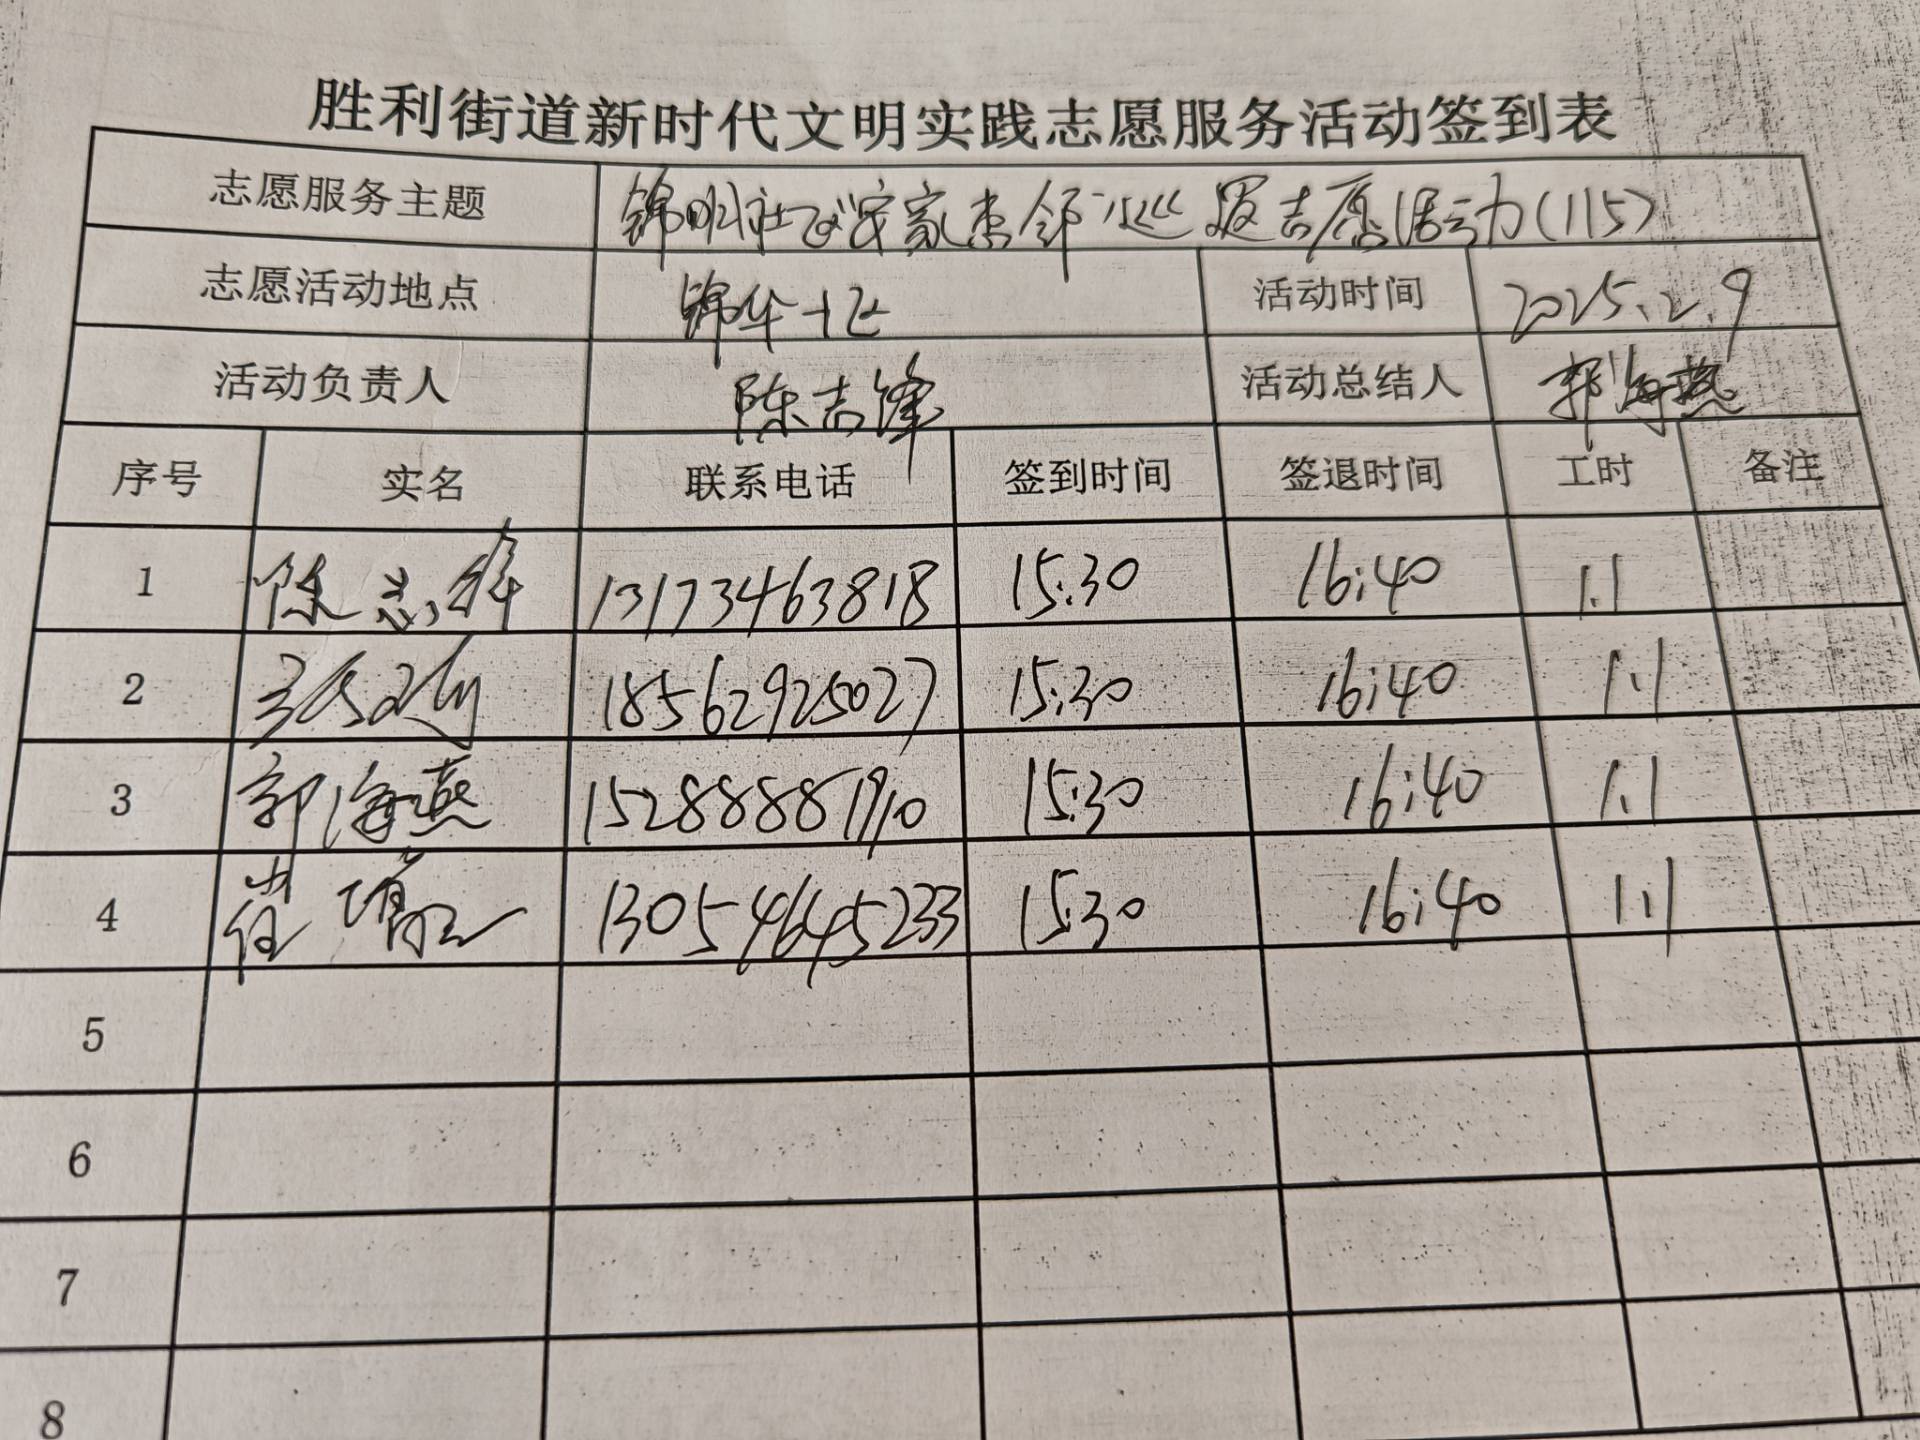 胜利街道新时代文明实践志愿服务活动签到表
志愿服务主题 锦明社区"安家杰邻"巡逻志愿活动(115)
志愿活动地点 锦华一区 活动时间 2025.2.9
活动负责人 陈志锋 活动总结人 郭海燕
序号 实名 联系电话 签到时间 签退时间 工时 备注
1 陈志锋 13173463818 15:30 16:40 1.1
2 18562925027 15:30 16:40 1.1
3 郭海燕 15288881910 15:30 16:40 1.1
4 13054645233 15:30 16:40 1.1
5
6
7
8